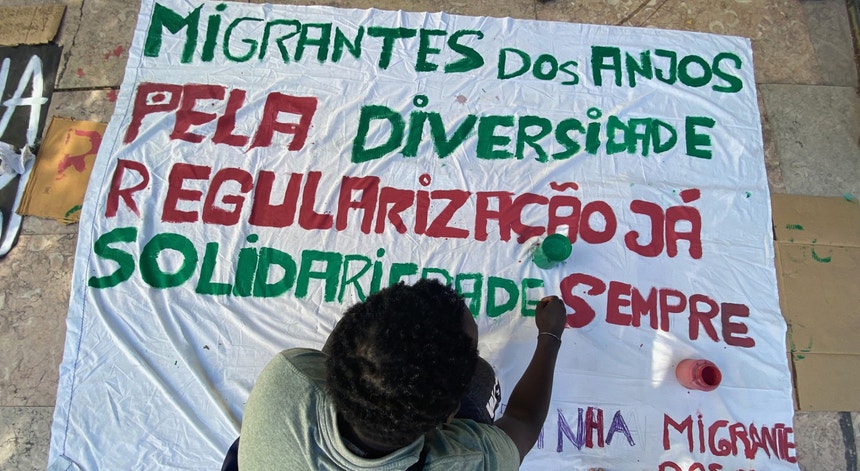 MiGRANTES DOS ANJOS
PELA DiVERSiDADE
REGULARiZAÇÃO JÁ
SOLiDARiEDADE SEMPRE
iNHA MiGRANTE